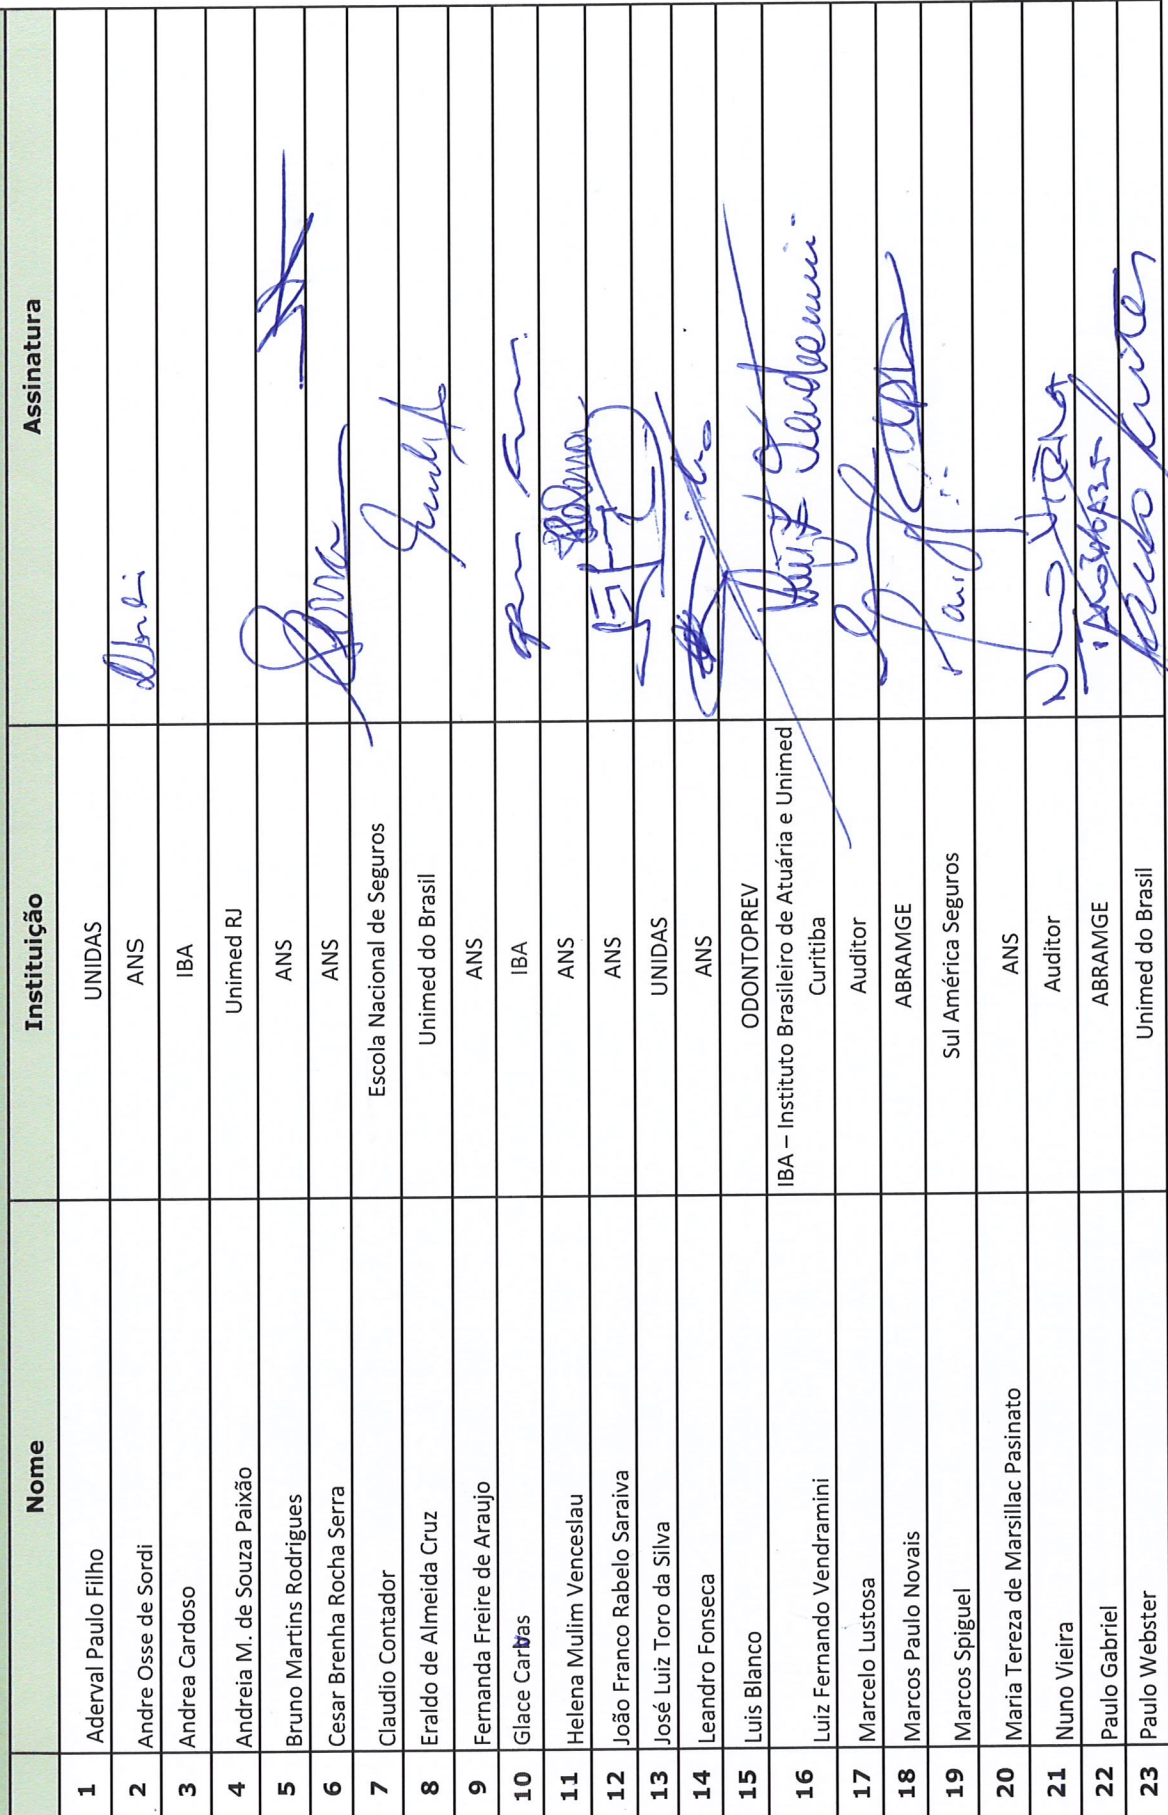 Nome Instituição Assinatura
1 Aderval Paulo Filho UNIDAS
2 Andre Osse de Sordi ANS
3 Andrea Cardoso IBA
4 Andreia M. de Souza Paixão Unimed RJ
5 Bruno Martins Rodrigues ANS
6 Cesar Brenha Rocha Serra ANS Serra
7 Claudio Contador Escola Nacional de Seguros
8 Eraldo de Almeida Cruz Unimed do Brasil
9 Fernanda Freire de Araujo ANS
10 Glace Carvas IBA
11 Helena Mulim Venceslau ANS Helena
12 João Franco Rabelo Saraiva ANS
13 José Luiz Toro da Silva UNIDAS
14 Leandro Fonseca ANS
15 Luis Blanco ODONTOPREV
16 Luiz Fernando Vendramini IBA – Instituto Brasileiro de Atuária e Unimed
Curitiba
17 Marcelo Lustosa Auditor
18 Marcos Paulo Novais ABRAMGE
19 Marcos Spiguel Sul América Seguros
20 Maria Tereza de Marsillac Pasinato ANS
21 Nuno Vieira Auditor Nuno Vieira
22 Paulo Gabriel ABRAMGE
23 Paulo Webster Unimed do Brasil